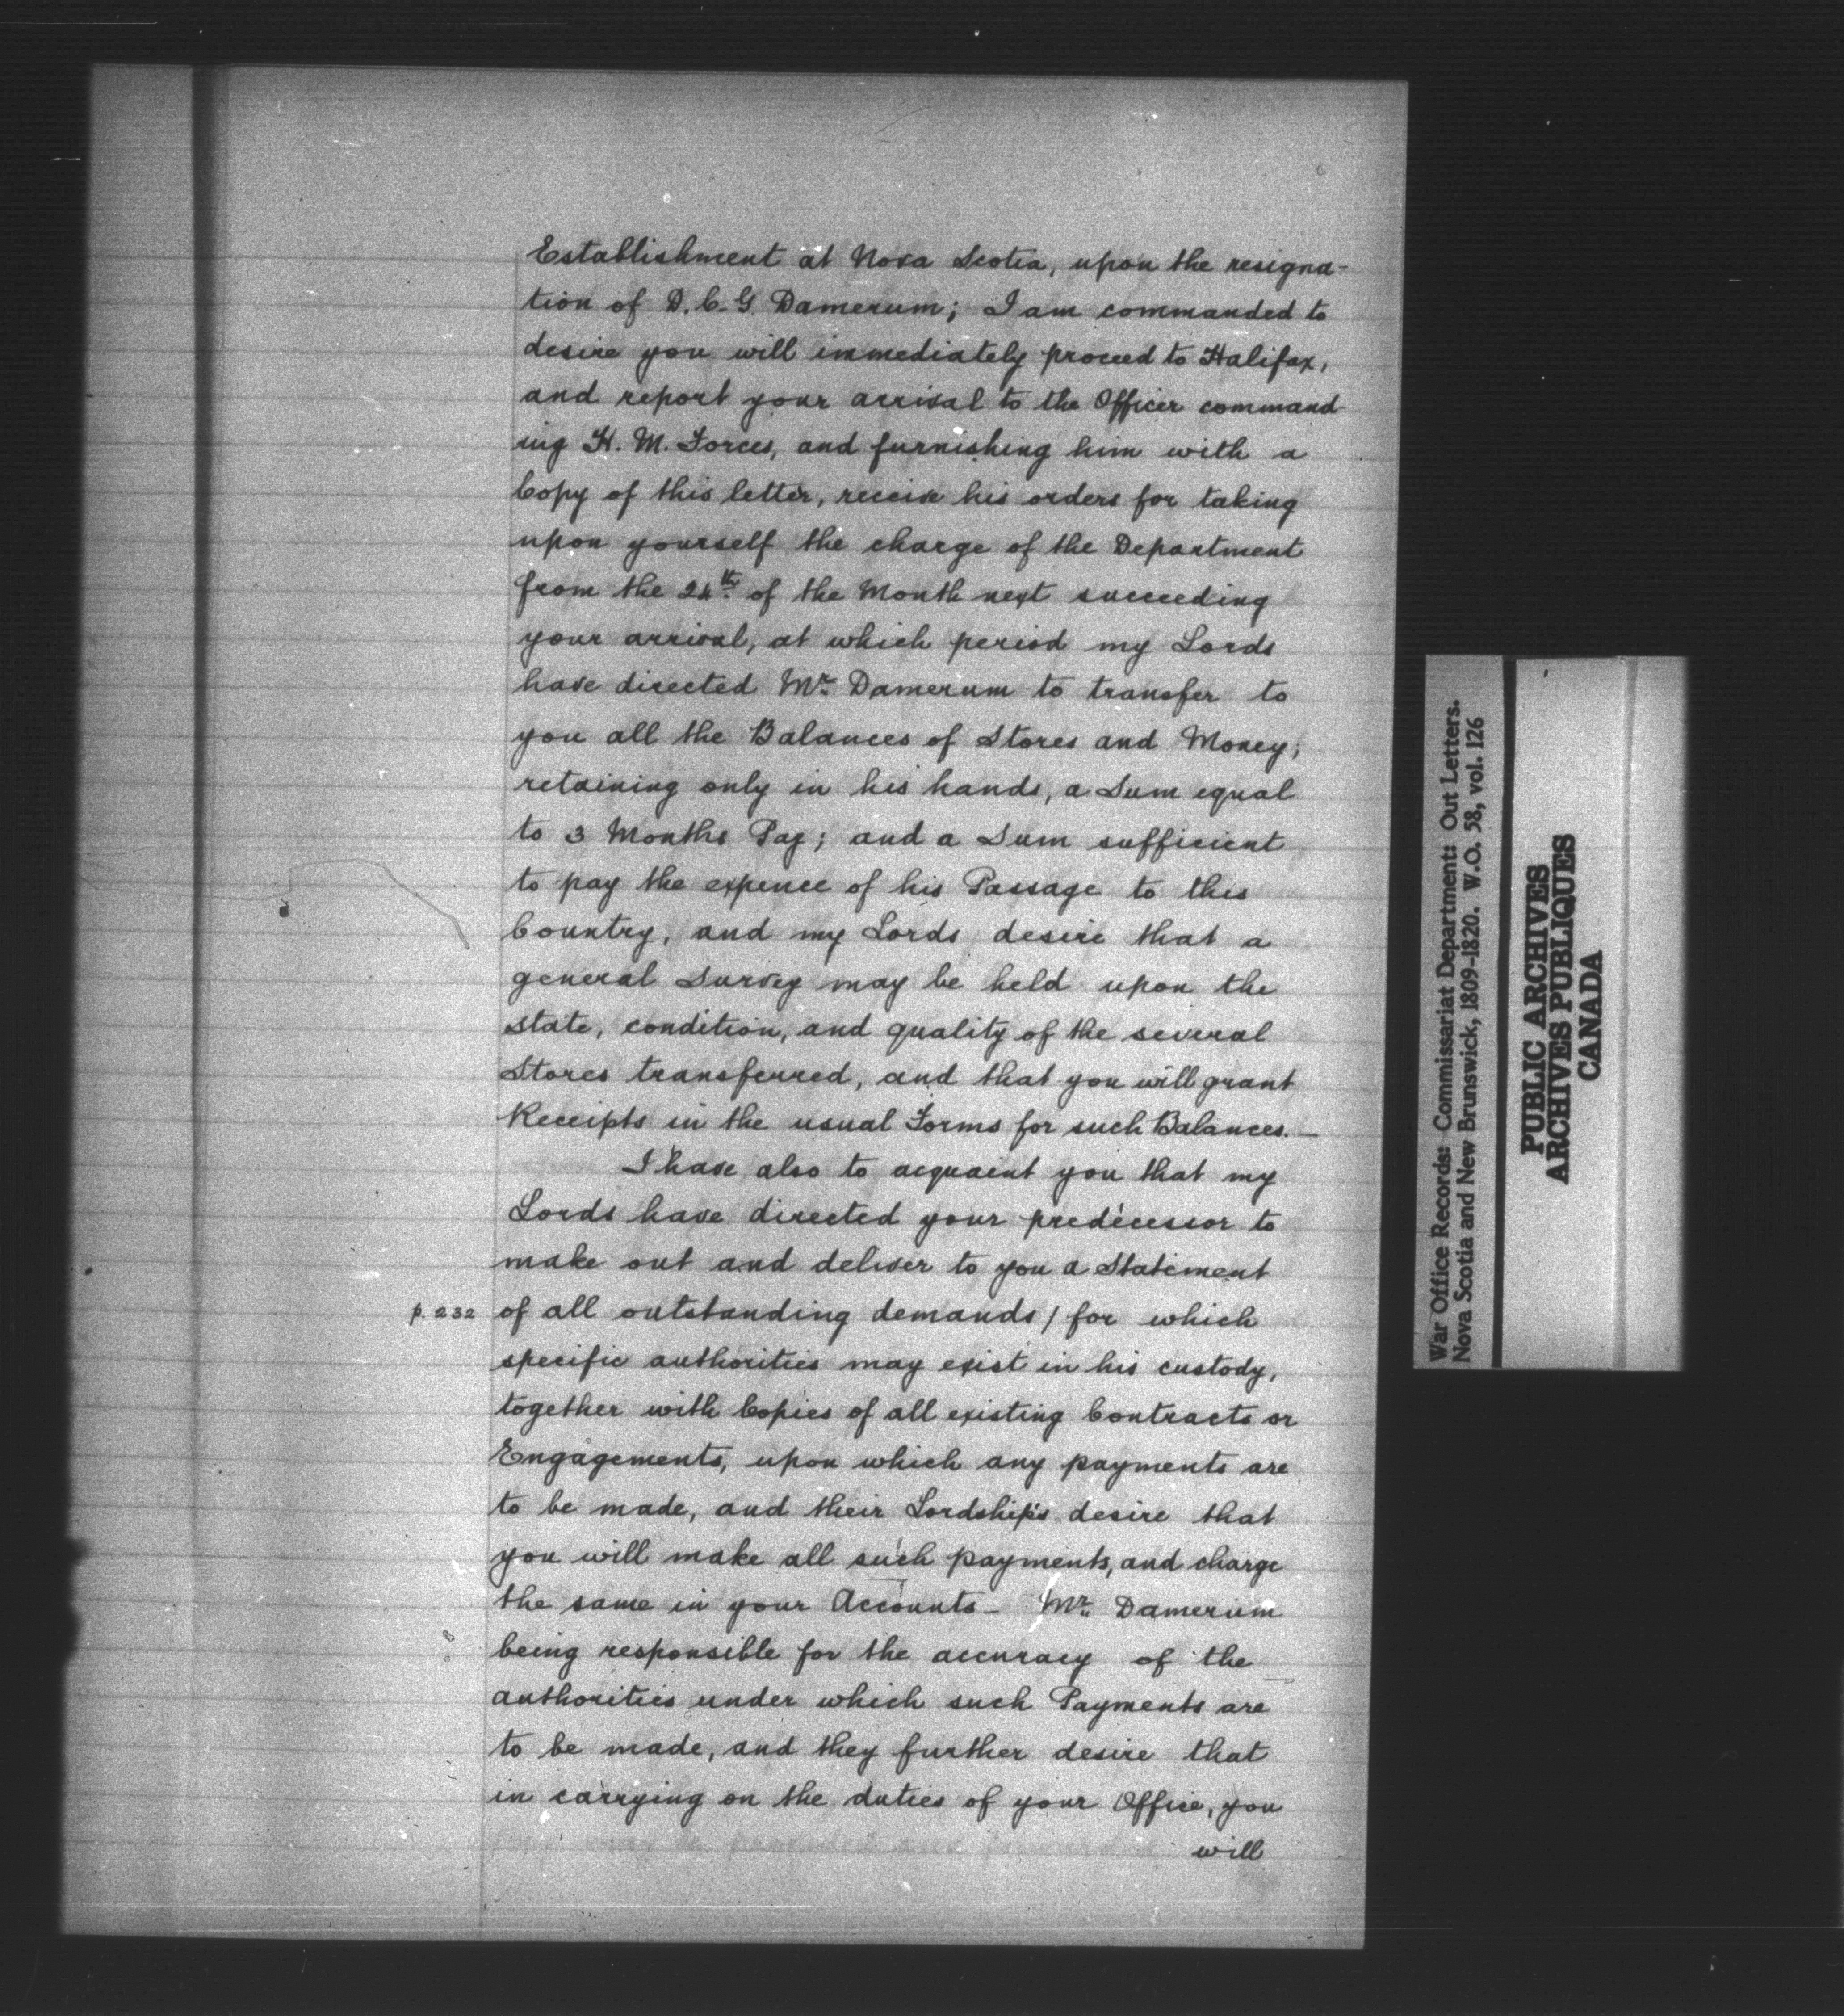 Establishment at Nova Scotia, upon the resigna-
tion of D. C. G. Damerum; I am commanded to
desire you will immediately proceed to Halifax,
and report your arrival to the Officer command-
ing H. M. Forces, and furnishing him with a
Copy of this letter, receive his orders for taking
upon yourself the charge of the Department
from the 24th of the Month next succeeding
your arrival, at which period my Lords
have directed Mr. Damerum to transfer to
you all the Balances of Stores and Money;
retaining only in his hands, a Sum equal
to 3 Months Pay; and a Sum sufficient
to pay the expence of his Passage to this
Country, and my Lords desire that a
general Survey may be held upon the
state, condition, and quality of the several
Stores transferred, and that you will grant
Receipts in the usual Forms for such Balances. —
I have also to acquaint you that my
Lords have directed your predecessor to
make out and deliver to you a Statement
p. 232 of all outstanding demands / for which
specific authorities may exist in his custody,
together with Copies of all existing Contracts or
Engagements, upon which any payments are
to be made, and their Lordships desire that
you will make all such payments, and charge
the same in your Accounts — Mr. Damerum
being responsible for the accuracy of the
authorities under which such Payments are
to be made, and they further desire that
in carrying on the duties of your Office, you
will
War Office Records: Commissariat Department: Out Letters.
Nova Scotia and New Brunswick, 1809-1820. W.O. 58, vol. 126
PUBLIC ARCHIVES
ARCHIVES PUBLIQUES
CANADA